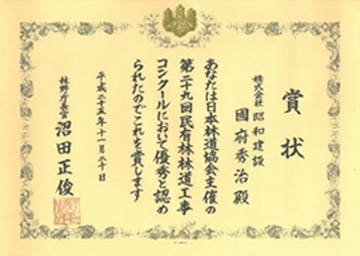 賞状
株式会社 昭和建設
國府秀治殿
あなたは日本林道協会主催の
第二十九回民有林林道工事
コンクールにおいて優秀と認め
られたのでこれを賞します
平成二十五年十一月二十日
林野庁長官 沼田正俊